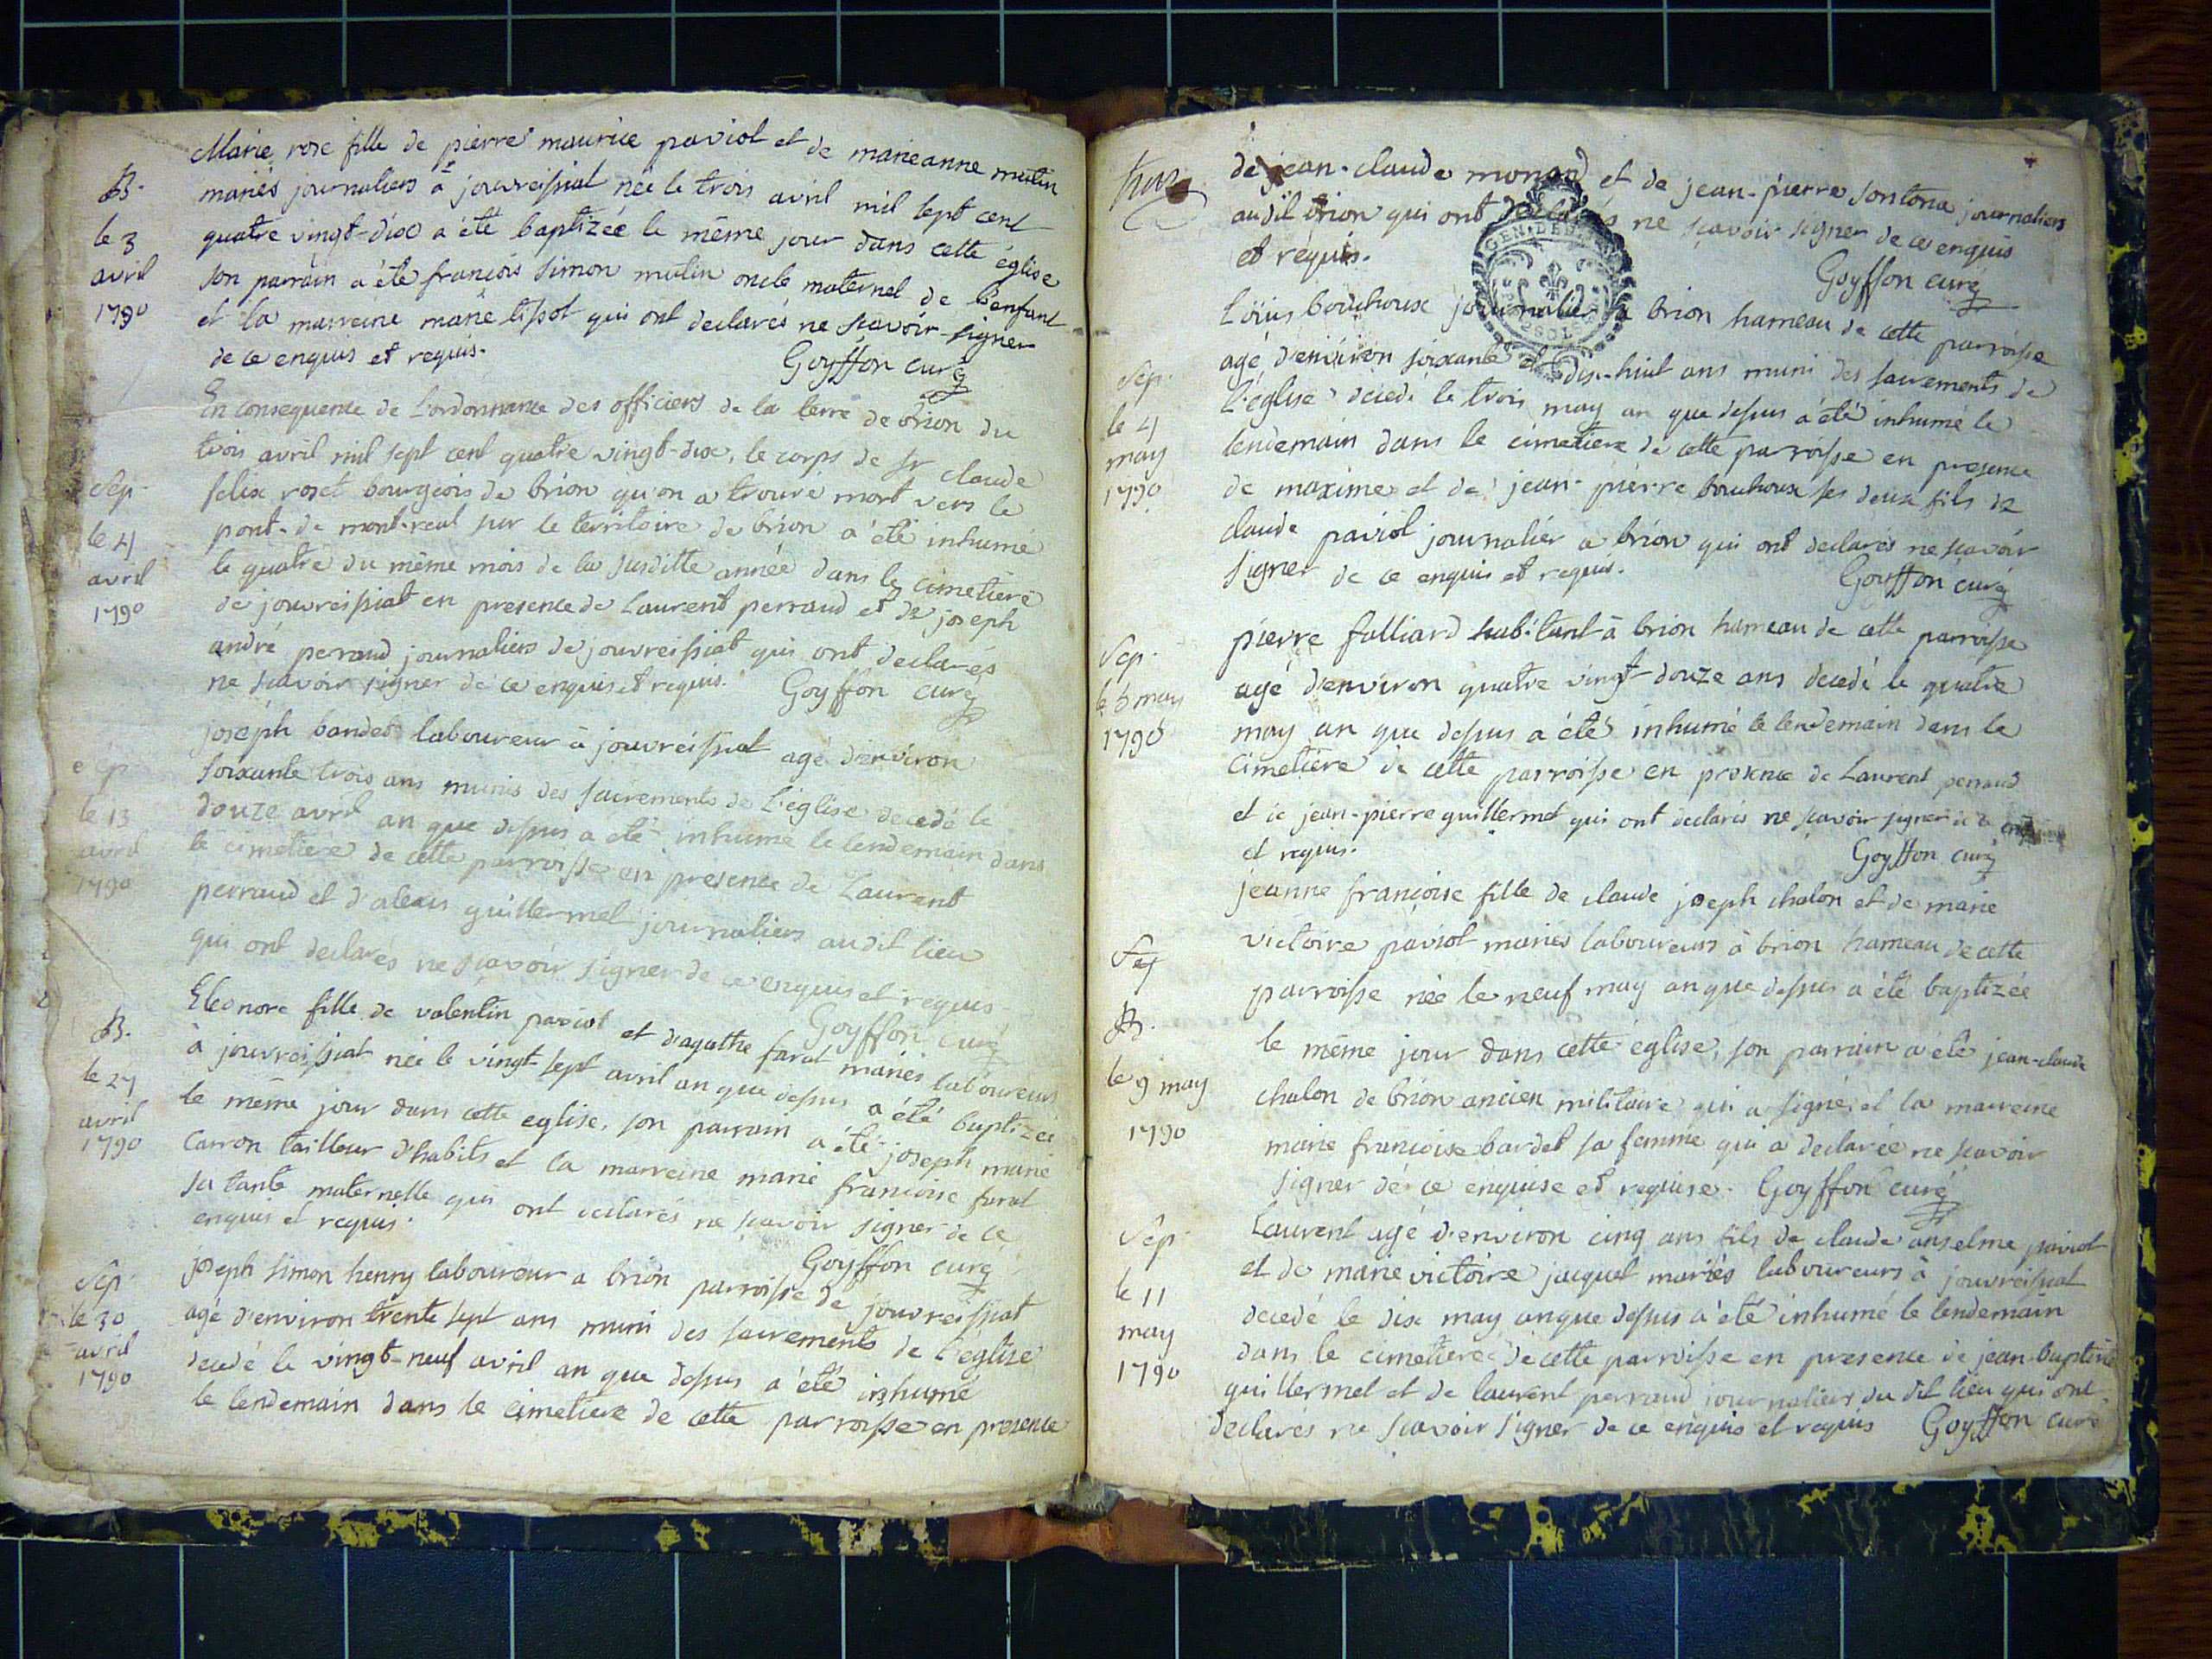 Marie rose fille de pierre maurice paviot et de marieanne mutin
B.
mariés journaliers a jouvreissiat née le trois avril mil sept cent
le 3
quatre vingt-dix a été baptizée le même jour dans cette église
avril
son parrain a été françois simon mutin oncle maternel de l'enfant
1790
et la marreine marie tissot qui ont declarés ne scavoir signer
de ce enquis et requis.
Goyffon curé
En consequence de l'ordonnance des officiers de la terre de brion du
trois avril mil sept cent quatre vingt-dix, le corps de sr claude
Sep.
felix roset bourgeois de brion qu'on a trouvé mort vers le
pont-de mont-real sur le territoire de brion a été inhumé
le 4
le quatre du même mois de la susditte année dans le cimetiere
avril
de jouvreissiat en presence de Laurent perraud et de joseph
1790
andré perraud journaliers de jouvreissiat qui ont declarés
ne scavoir signer de ce enquis et requis. Goyffon curé
joseph bandet laboureur à jouvreissiat agé d'environ
Sep.
soixante trois ans munis des sacrements de l'église decedé le
le 13
douze avril an que dessus a été inhumé le lendemain dans
avril
le cimetiere de cette parroisse en presence de Laurent
1790
perraud et d'alexis guillermet journaliers audit lieu
qui ont declarés ne scavoir signer de ce enquis et requis
Goyffon curé
Eleonore fille de valentin paviot et d'agathe farat mariés laboureurs
B.
à jouvreissiat née le vingt-sept avril an que dessus a été baptizée
le 27
le même jour dans cette eglise, son parrain a été joseph marie
avril
Carron tailleur d'habits et la marreine marie francoise farat
1790
sa tante maternelle qui ont declarés ne scavoir signer de ce
enquis et requis.
Goyffon curé
Sep.
joseph simon henry laboureur a brion parroisse de jouvreissiat
le 30
agé d'environ trente sept ans muni des sacrements de l'église
avril
decedé le vingt-neuf avril an que dessus a été inhumé
1790
le lendemain dans le cimetiere de cette parroisse en presence
de jean-claude monard et de jean-pierre journaliers
audit brion qui ont declarés ne scavoir signer de ce enquis
et requis.
Goyffon curé
GEN.DE
Loüis bouchoux journalier a brion hameau de cette parroisse
Sep.
agé d'environ soixante et dix-huit ans muni des sacrements de
le 4
L'église decedé le trois may an que dessus a été inhumé le
may
lendemain dans le cimetiere de cette parroisse en presence
1790
de maxime et de jean-pierre bouchoux ses deux fils de
claude paviot journalier a brion qui ont declarés ne scavoir
signer de ce enquis et requis.
Goyffon curé
pierre falliard habitant à brion hameau de cette parroisse
Sep.
agé d'environ quatre vingt-douze ans decedé le quatre
le 5 may
may an que dessus a été inhumé le lendemain dans le
1790
cimetiere de cette parroisse en presence de Laurent perraud
et de jean-pierre guillermet qui ont declarés ne scavoir signer de ce
et requis.
Goyffon curé
jeanne françoise fille de claude joseph chalon et de marie
victoire paviot mariés laboureurs à brion hameau de cette
parroisse née le neuf may an que dessus a été baptizée
B.
le même jour dans cette église, son parrain a été jean-claude
le 9 may
chalon de brion ancien militaire qui a signé, et la marreine
1790
marie francoise bardet sa femme qui a declarée ne scavoir
signer de ce enquise et requise. Goyffon curé
Sep.
Laurent agé d'environ cinq ans fils de claude anselme paviot
et de marie victoire jacquet mariés laboureurs à jouvreissiat
le 11
decedé le dix may an que dessus a été inhumé le lendemain
may
dans le cimetiere de cette parroisse en presence de jean-baptiste
1790
guillermet et de laurent perraud journaliers du dit lieu qui ont
declarés ne scavoir signer de ce enquis et requis Goyffon curé